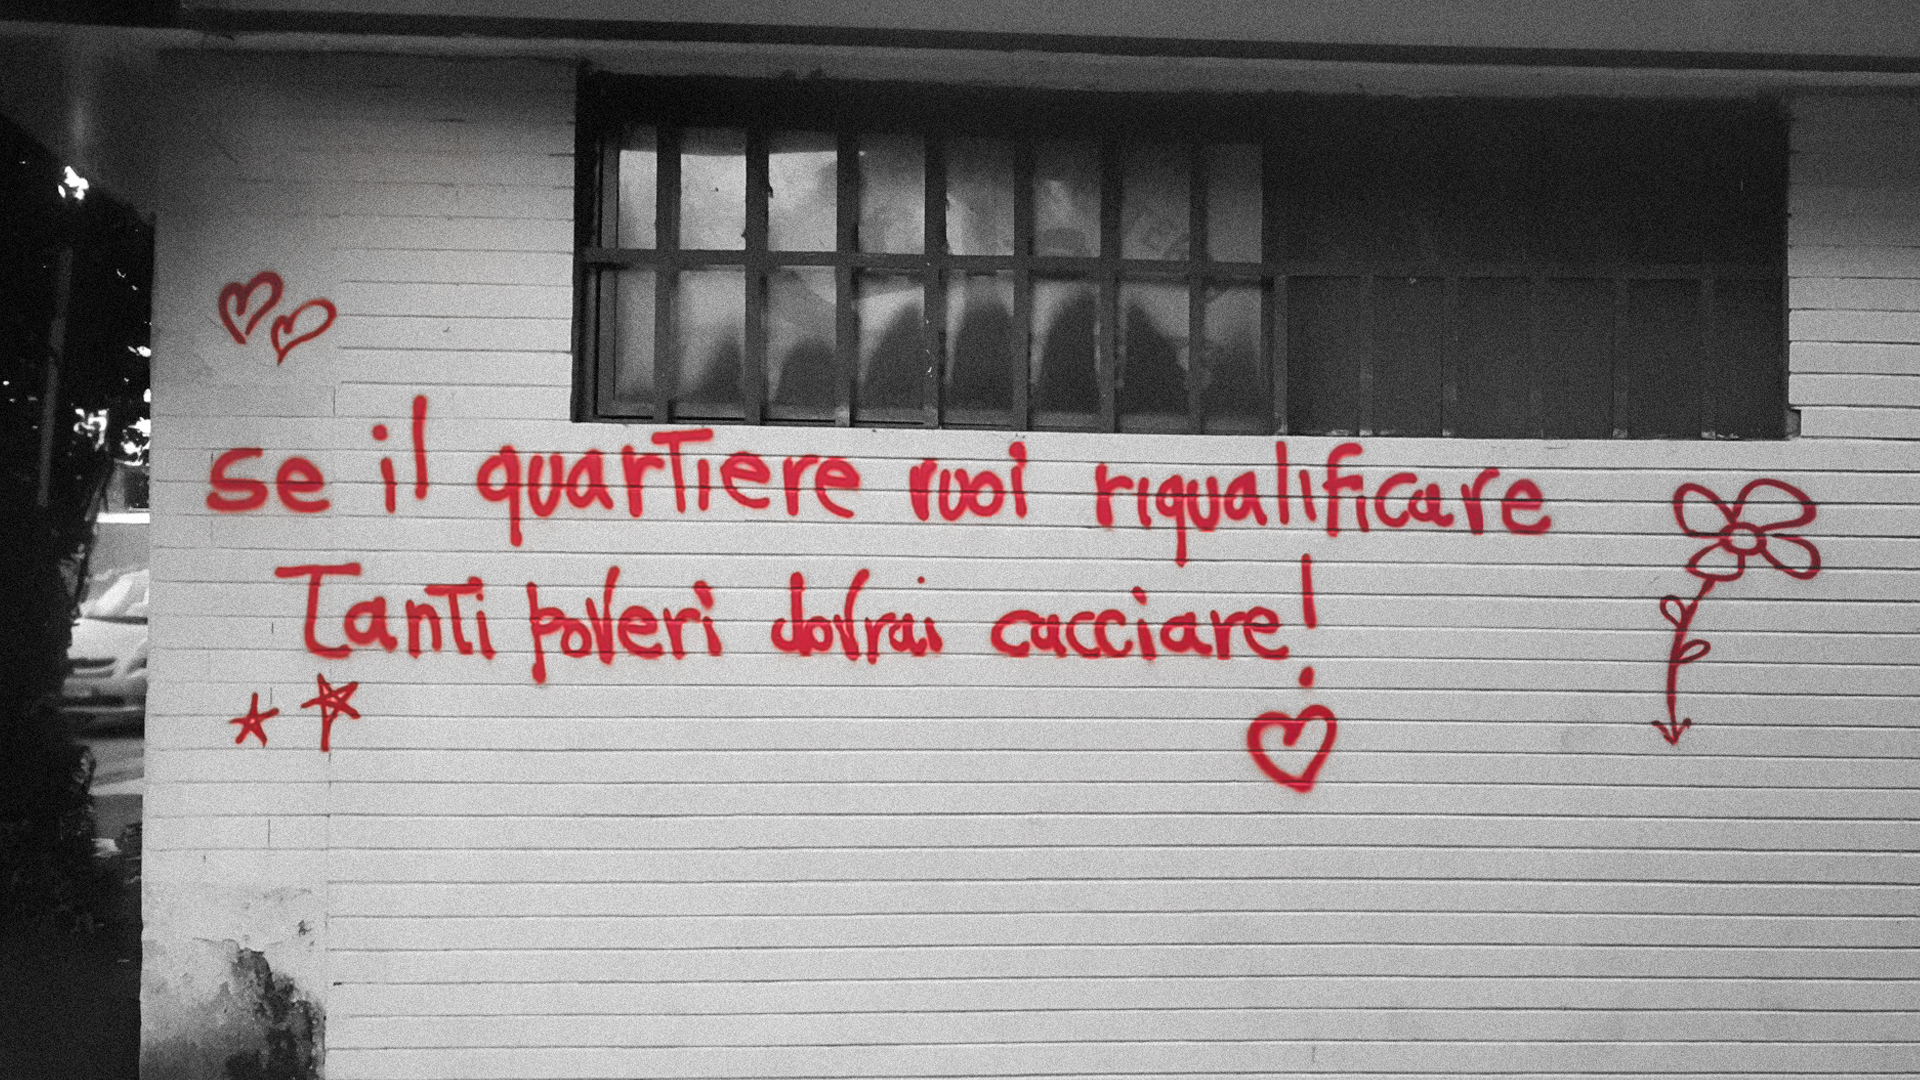 se il quartiere vuoi riqualificare
Tanti poveri dovrai cacciare!